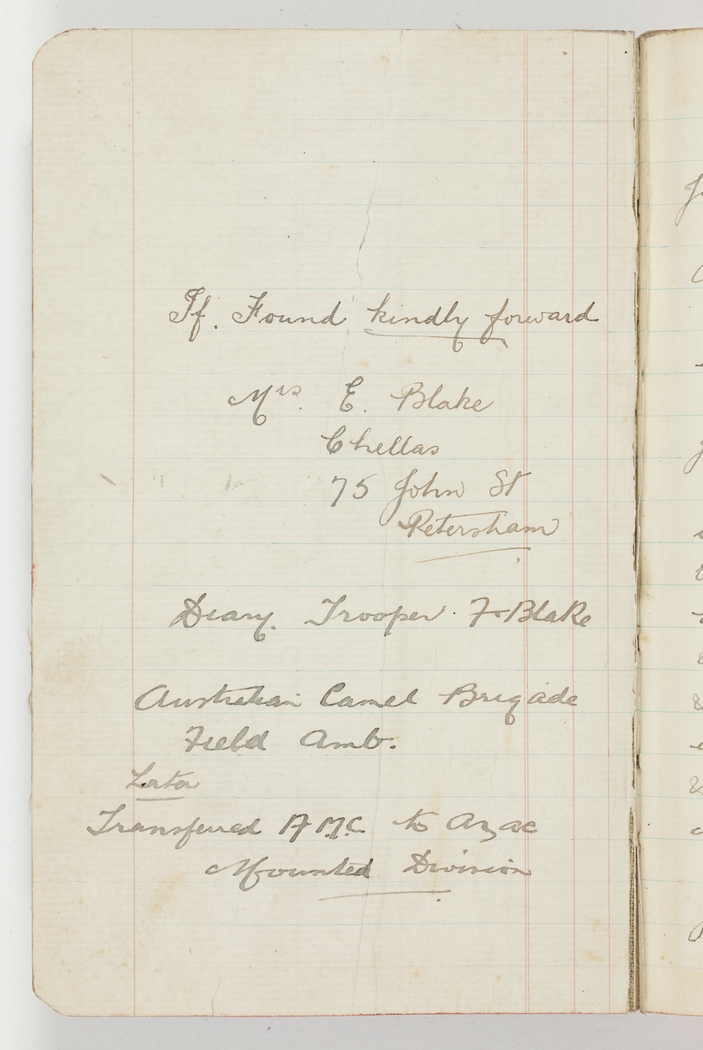 If. Found kindly forward
Mrs. E. Blake
Chellas
75 John St
Petersham
Diary. Trooper F Blake
Australian Camel Brigade
Field Amb.
Later
Transferred A.M.C. to Anzac
Mounted Division